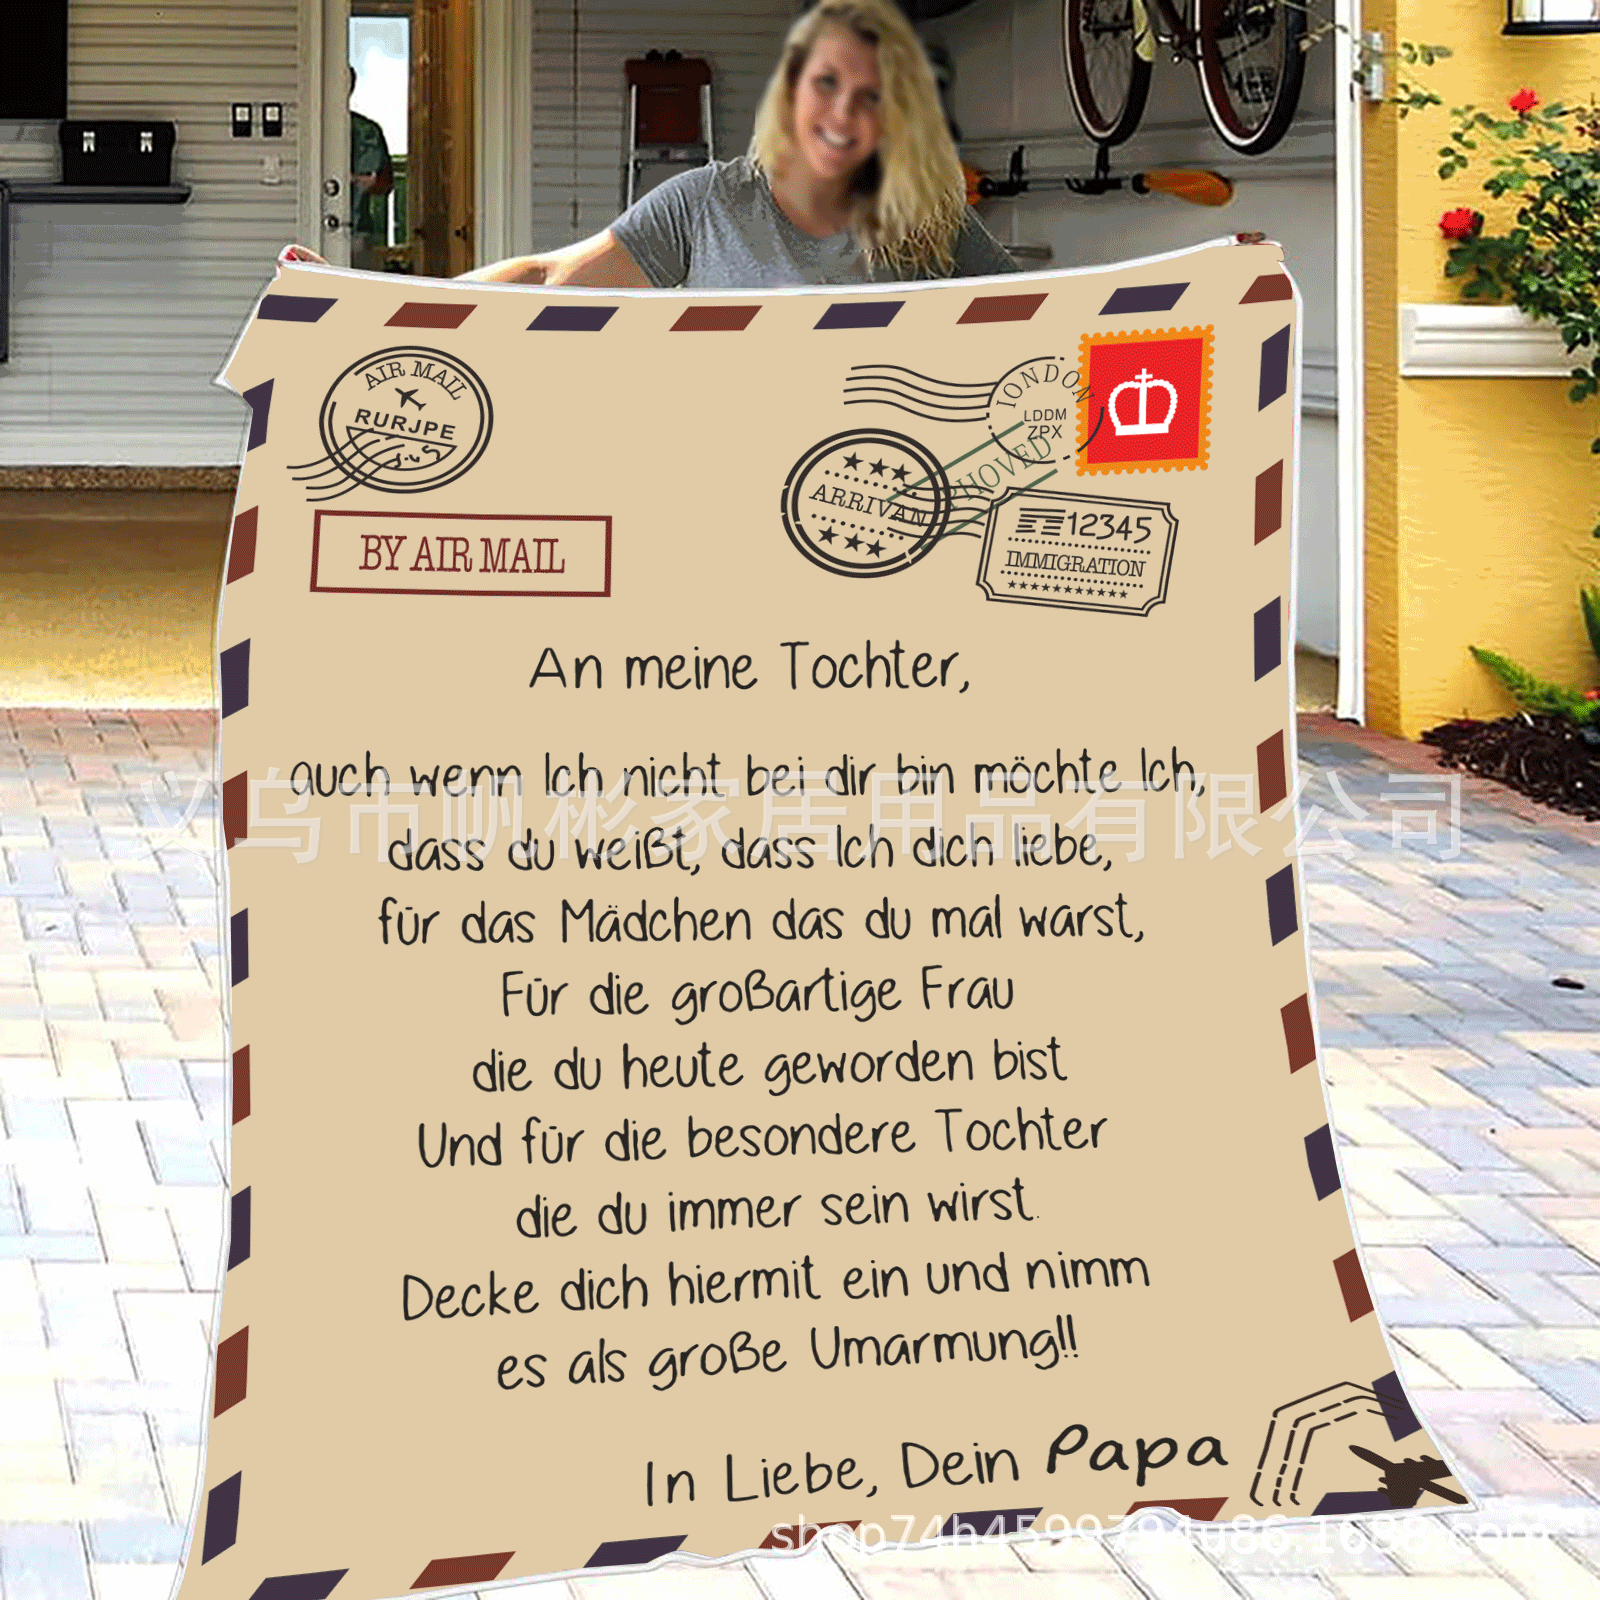 AIR MAIL
RURJPE
BY AIR MAIL
LONDON
LDDM
ZPX
PHOVED
ARRIVAN
12345
IMMIGRATION
An meine Tochter,
auch wenn Ich nicht bei dir bin möchte Ich,
义乌市帆彬家居用品有限公司
dass du weißt, dass Ich dich liebe,
für das Mädchen das du mal warst,
Für die großartige Frau
die du heute geworden bist
Und für die besondere Tochter
die du immer sein wirst.
Decke dich hiermit ein und nimm
es als große Umarmung!!
In Liebe, Dein Papa
shop74h4599794u86.1688.com